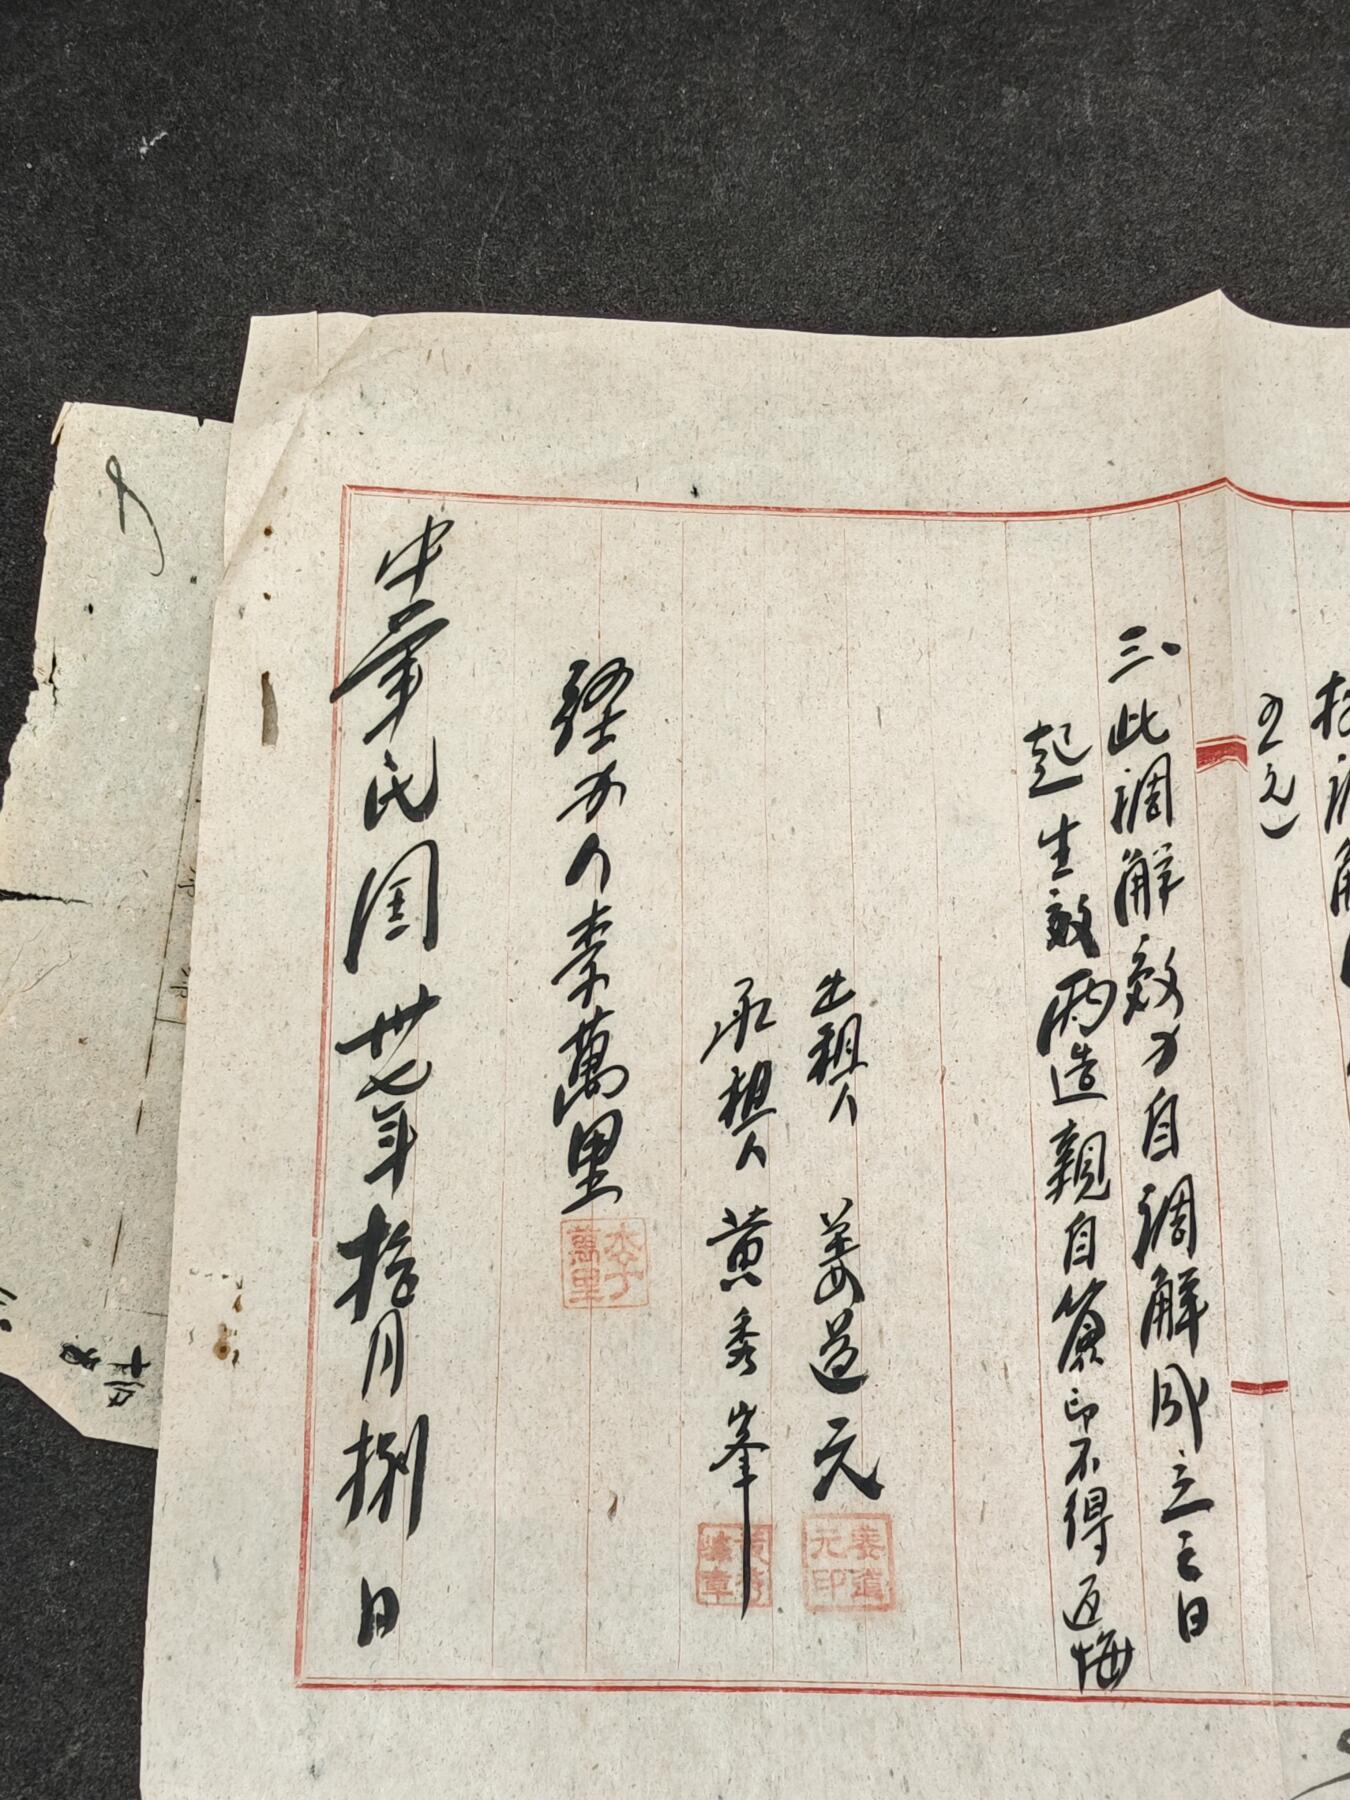 按調解
五元）
三、此調解效力自調解成立之日
起生效兩造親自簽印不得返悔
出租人 姜道元
姜道元印
承租人 黃秀峯
黃秀峯章
經办人李萬里
李萬里
中華民国卅七年拾月捌日